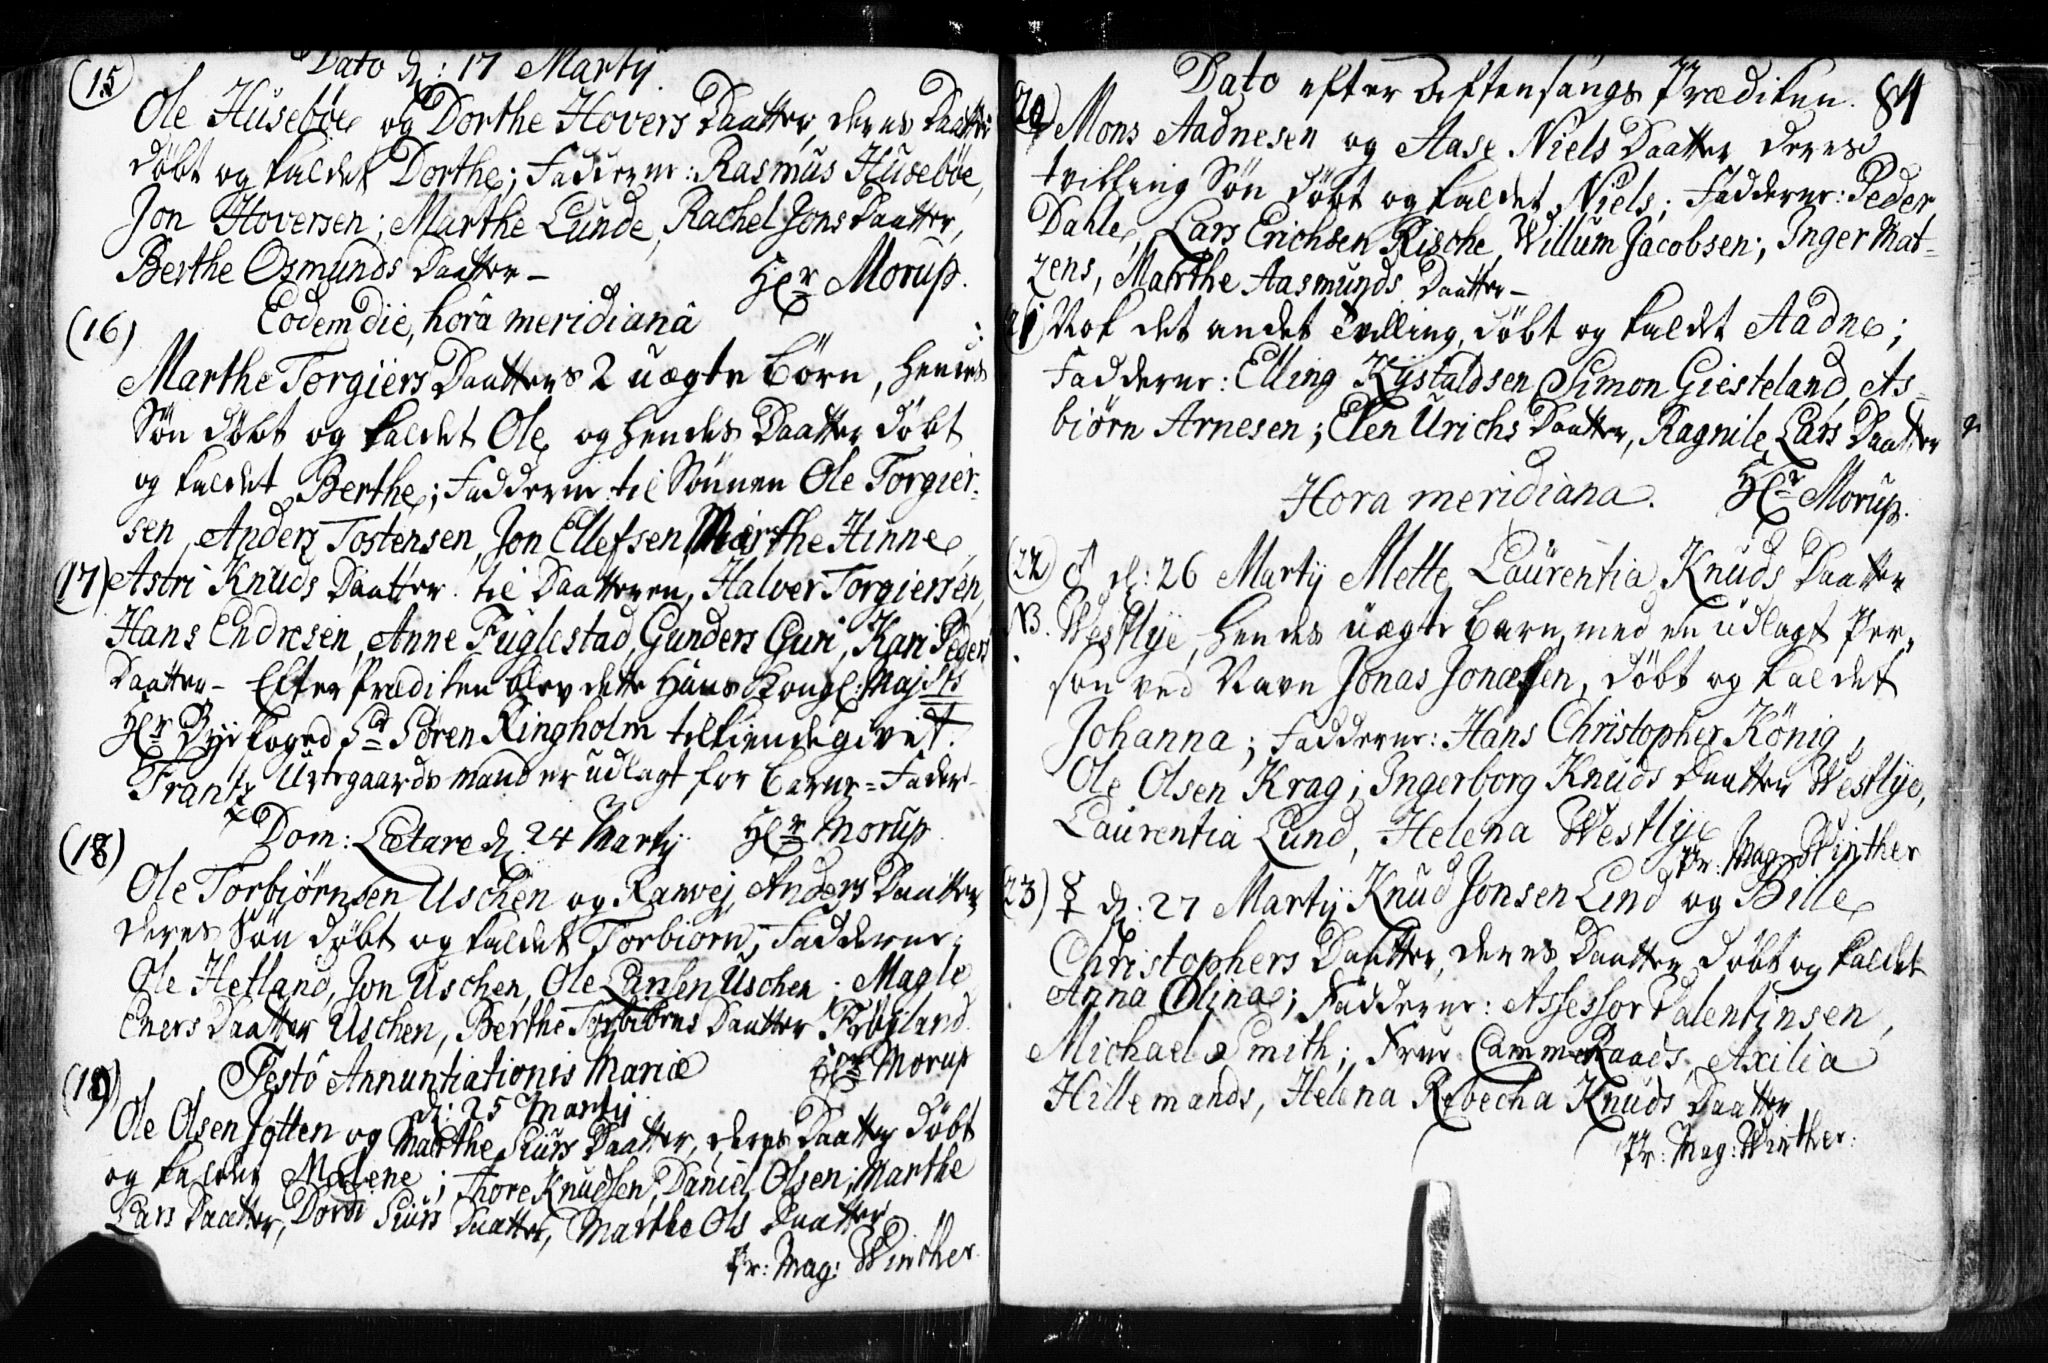 Dato d: 17 Martij
(15)
Ole Husebøe og Dorthe Hovers Daatter, deres Daatter
døbt og kaldet Dorthe; Fadderne: Rasmus Husebøe,
Jon Hoversen; Marthe Lunde, Rachel Jons Daatter,
Berthe Osmunds Daatter –
Hr Morup.
Eodem die, horâ meridianâ
(16)
Marthe Torgiers Daatters 2 uægte Børn, hendes
Søn døbt og kaldet Ole, og hendes Daatter døbt
og kaldet Berthe; Fadderne til Sønnen Ole Torgier-
sen, Anders Tostensen, Jon Ellefsen, Marthe Hinne,
(17) Astri Knuds Daatter. til Daatteren, Halver Torgiersen,
Hans Endresen, Anne Fuglestad, Gunders Guri, Kari Peders
Daatter – Efter Prædiken blev dette Hans Kongl: Majts
Hr Byefoged Sr Søren Ringholm tilkiendegivet.
Frantz Urtegaardsmand er udlagt for Barne=Fader –
Dom: Lætare d. 24 Martij
Hr Morup.
(18)
Ole Torbiørnsen Uschen og Ranvej Anders Daatter
deres Søn døbt og kaldet Torbiørn; Fadderne:
Ole Hetland, Jon Uschen, Ole Larsen Uschen; Magle
Eners Daatter Uschen, Berthe Torbiørns Daatter Frøyland.
Hr Morup
Festô Annuntiationis Mariæ
d: 25 Martij
(19)
Ole Olsen Jotten og Marthe Siurs Daatter, deres Daatter døbt
og kaldet Malene; Thore Knudsen, Daniel Olsen; Marthe
Lars Daatter, Dorte Siurs Daatter, Marthe Ols Daatter
Pr: Mag: Winther.
Dato efter Aftensangs Prædiken. 84
(20) Mons Aadnesen og Aase Niels Daatter, deres
tvilling Søn døbt og kaldet Niels; Fadderne: Peder
Dahle, Lars Erichsen Rische, Willum Jacobsen; Inger Mat-
zens, Marthe Aasmunds Daatter –
(21) Nok det andet Tvilling, døbt og kaldet Aadne;
Fadderne: Elling Kystaldsen, Simon Giesteland, As-
biørn Arnesen; Elen Urichs Daatter, Ragnile Lars Daatter
Hr Morup.
Hora meridiana.
(22) ♂ d: 26 Martij Mette Laurentia Knuds Daatter
NB. Westlye, hendes uægte Barn, med en udlagt Per-
son ved Navn Jonas Jonæsen, døbt og kaldet
Johanna; Fadderne: Hans Christopher König,
Ole Olsen Krag; Ingerborg Knuds Daatter Westlye,
Laurentia Lund, Helena Westlye
Pr: Mag: Winther
(23) ☿ d: 27 Martij Knud Jonsen Lind og Bille
Christophers Daatter, deres Daatter døbt og kaldet
Anna Olina; Fadderne: Assessor Valentinsen,
Michael Smith; Frue CammerRaads, Axilia
Hillemands, Helena Rebecha Knuds Daatter
Pr: Mag: Winther.